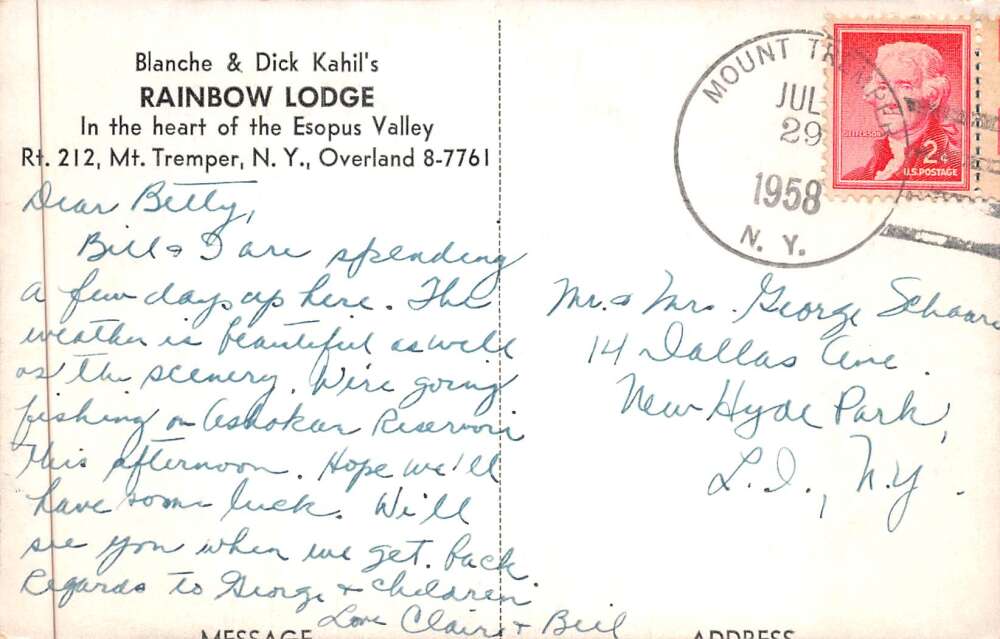 Blanche & Dick Kahil's
RAINBOW LODGE
In the heart of the Esopus Valley
Rt. 212, Mt. Tremper, N. Y., Overland 8-7761
Dear Betty,
Bill & I are spending
a few days up here. The
weather is beautiful as well
as the scenery. We're going
fishing on Ashokan Reservoir
this afternoon. Hope we'll
have some luck. We'll
see you when we get back.
Regards to George & children
Love Claire & Bill
MESSAGE
MOUNT TREMPER
JUL
29
1958
N. Y.
JEFFERSON
2¢
U.S. POSTAGE
Mr. & Mrs. George
14 Dallas Ave.
New Hyde Park,
L. I., N. Y.
ADDRESS